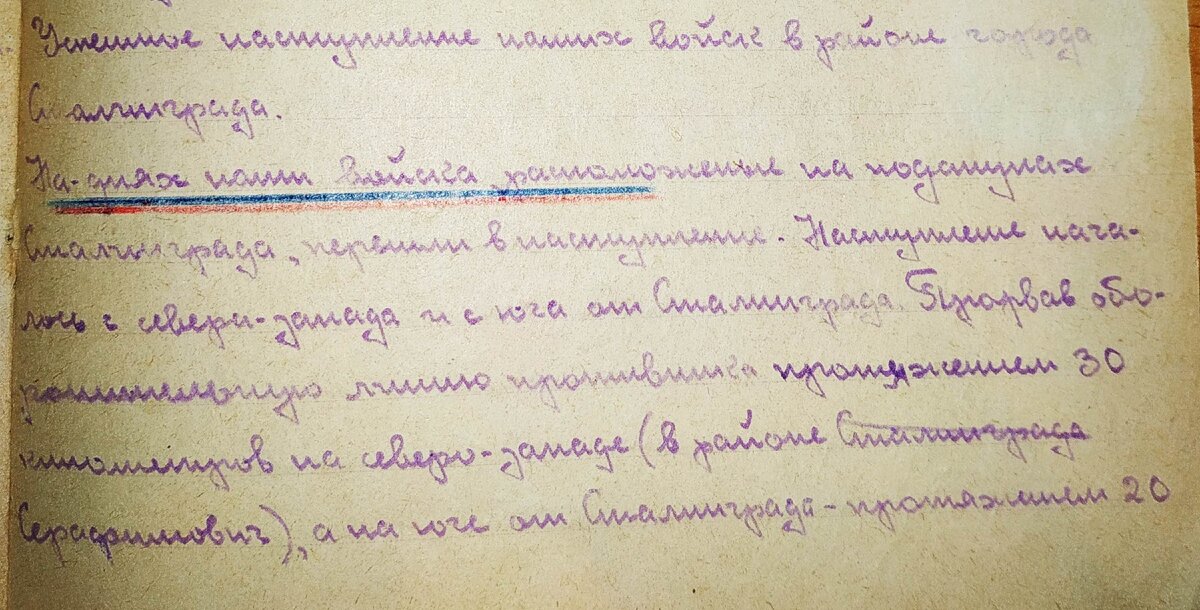 Успешное наступление наших войск в районе города
Сталинграда.
На-днях наши войска, расположеные на подступах
Сталинграда, перешли в наступление. Наступление нача-
лось с северо-запада и с юга от Сталинграда. Прорвав обо-
ронительную линию противника протяжением 30
километров на северо-западе (в районе Сталинграда
Серафимович), а на юге от Сталинграда - протяжением 20